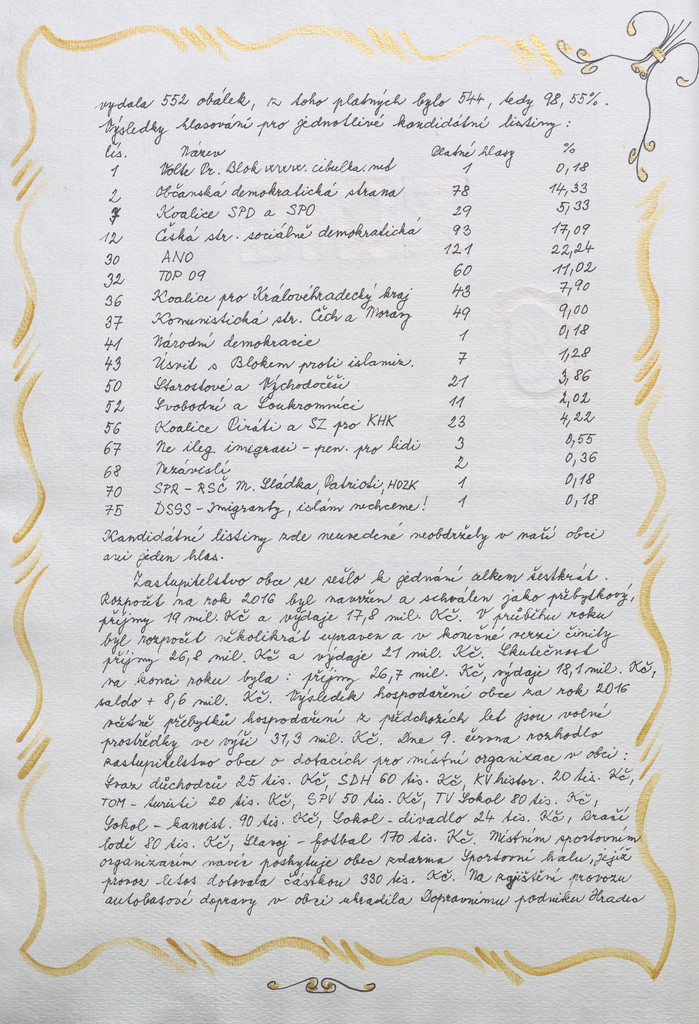 vydala 552 obálek, z toho platných bylo 544, tedy 98,55%.
Výsledky hlasování pro jednotlivé kandidátní listiny:
čís. Název Platné hlasy %
1 Volte Pr. Blok www.cibulka.net 1 0,18
2 Občanská demokratická strana 78 14,33
7 Koalice SPD a SPO 29 5,33
12 Česká str. sociálně demokratická 93 17,09
30 ANO 121 22,24
32 TOP 09 60 11,02
36 Koalice pro Královéhradecký kraj 43 7,90
37 Komunistická str. Čech a Moravy 49 9,00
41 Národní demokracie 1 0,18
43 Úsvit s Blokem proti islamiz. 7 1,28
50 Starostové a Východočeši 21 3,86
52 Svobodní a Soukromníci 11 2,02
56 Koalice Piráti a SZ pro KHK 23 4,22
67 Ne ileg. imigraci - pen. pro lidi 3 0,55
68 Nezávislí 2 0,36
70 SPR - RSČ M. Sládka, Patrioti, HOZK 1 0,18
75 DSSS - Imigranty, islám nechceme! 1 0,18
Kandidátní listiny zde neuvedené neobdržely v naší obci
ani jeden hlas.
Zastupitelstvo obce se sešlo k jednání celkem šestkrát.
Rozpočet na rok 2016 byl navržen a schválen jako přebytkový,
příjmy 19 mil. Kč a výdaje 17,8 mil. Kč. V průběhu roku
byl rozpočet několikrát upraven a v konečné verzi činily
příjmy 26,8 mil. Kč a výdaje 21 mil. Kč. Skutečnost
na konci roku byla: příjmy 26,7 mil. Kč, výdaje 18,1 mil. Kč,
saldo + 8,6 mil. Kč. Výsledek hospodaření obce za rok 2016
včetně přebytků hospodaření z předchozích let jsou volné
prostředky ve výši 31,3 mil. Kč. Dne 9. června rozhodlo
zastupitelstvo obce o dotacích pro místní organizace v obci:
Svaz důchodců 25 tis. Kč, SDH 60 tis. Kč, KV histor. 20 tis. Kč,
TOM - turisti 20 tis. Kč, SPV 50 tis. Kč, TV Sokol 80 tis. Kč,
Sokol - kanoist. 90 tis. Kč, Sokol - divadlo 24 tis. Kč, Dračí
lodě 80 tis. Kč, Slavoj - fotbal 170 tis. Kč. Místním sportovním
organizacím navíc poskytuje obec zdarma Sportovní halu, jejíž
provoz letos dotovala částkou 330 tis. Kč. Na zajištění provozu
autobusové dopravy v obci uhradila Dopravnímu podniku Hradec